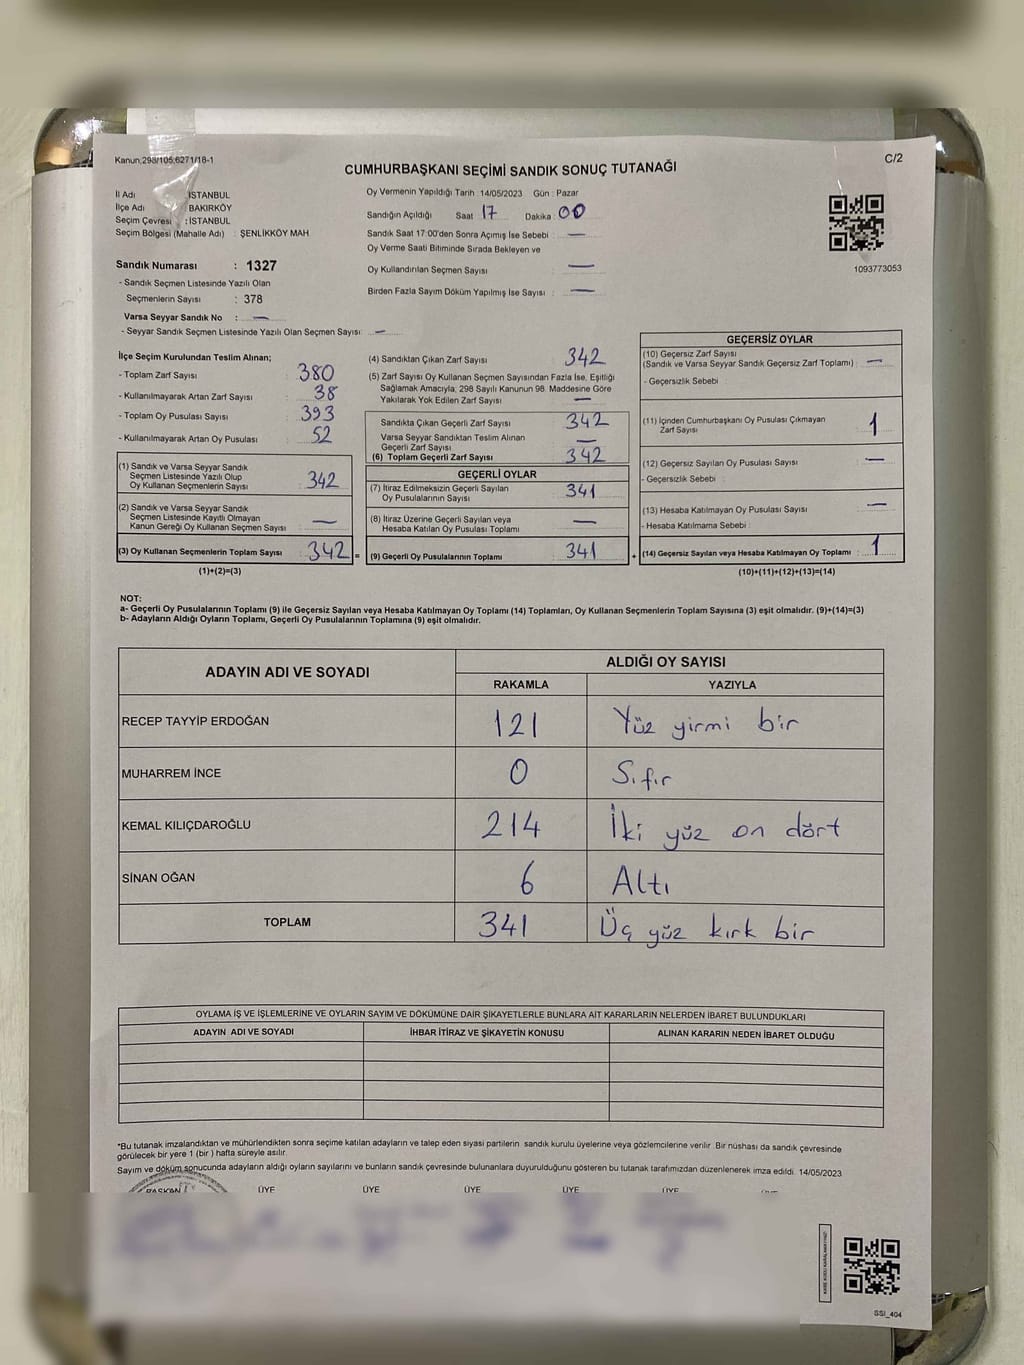 Kanun;298/105;6271/18-1
C/2
CUMHURBAŞKANI SEÇİMİ SANDIK SONUÇ TUTANAĞI
İl Adı : İSTANBUL
İlçe Adı : BAKIRKÖY
Seçim Çevresi : İSTANBUL
Seçim Bölgesi (Mahalle Adı) : ŞENLİKKÖY MAH
Oy Vermenin Yapıldığı Tarih : 14/05/2023 Gün : Pazar
Sandığın Açıldığı Saat 17 Dakika : 00
Sandık Saat 17:00'den Sonra Açımış İse Sebebi : —
Oy Verme Saati Bitiminde Sırada Bekleyen ve
Oy Kullandırılan Seçmen Sayısı —
Birden Fazla Sayım Döküm Yapılmış İse Sayısı : —
1093773053
Sandık Numarası : 1327
- Sandık Seçmen Listesinde Yazılı Olan
Seçmenlerin Sayısı : 378
Varsa Seyyar Sandık No : —
- Seyyar Sandık Seçmen Listesinde Yazılı Olan Seçmen Sayısı: —
İlçe Seçim Kurulundan Teslim Alınan;
- Toplam Zarf Sayısı : 380
- Kullanılmayarak Artan Zarf Sayısı : 38
- Toplam Oy Pusulası Sayısı : 393
- Kullanılmayarak Artan Oy Pusulası : 52
(1) Sandık ve Varsa Seyyar Sandık
Seçmen Listesinde Yazılı Olup
Oy Kullanan Seçmenlerin Sayısı : 342
(2) Sandık ve Varsa Seyyar Sandık
Seçmen Listesinde Kayıtlı Olmayan
Kanun Gereği Oy Kullanan Seçmen Sayısı : —
(3) Oy Kullanan Seçmenlerin Toplam Sayısı : 342 =
(1)+(2)=(3)
(4) Sandıktan Çıkan Zarf Sayısı : 342
(5) Zarf Sayısı Oy Kullanan Seçmen Sayısından Fazla İse, Eşitliği
Sağlamak Amacıyla; 298 Sayılı Kanunun 98. Maddesine Göre
Yakılarak Yok Edilen Zarf Sayısı : —
Sandıkta Çıkan Geçerli Zarf Sayısı : 342
Varsa Seyyar Sandıktan Teslim Alınan
Geçerli Zarf Sayısı : —
(6) Toplam Geçerli Zarf Sayısı : 342
GEÇERLİ OYLAR
(7) İtiraz Edilmeksizin Geçerli Sayılan
Oy Pusulalarının Sayısı : 341
(8) İtiraz Üzerine Geçerli Sayılan veya
Hesaba Katılan Oy Pusulası Toplamı : —
(9) Geçerli Oy Pusulalarının Toplamı : 341 +
GEÇERSİZ OYLAR
(10) Geçersiz Zarf Sayısı
(Sandık ve Varsa Seyyar Sandık Geçersiz Zarf Toplamı) : —
- Geçersizlik Sebebi :
(11) İçinden Cumhurbaşkanı Oy Pusulası Çıkmayan
Zarf Sayısı : 1
(12) Geçersiz Sayılan Oy Pusulası Sayısı : —
- Geçersizlik Sebebi :
(13) Hesaba Katılmayan Oy Pusulası Sayısı : —
- Hesaba Katılmama Sebebi :
(14) Geçersiz Sayılan veya Hesaba Katılmayan Oy Toplamı : 1
(10)+(11)+(12)+(13)=(14)
NOT:
a- Geçerli Oy Pusulalarının Toplamı (9) ile Geçersiz Sayılan veya Hesaba Katılmayan Oy Toplamı (14) Toplamları, Oy Kullanan Seçmenlerin Toplam Sayısına (3) eşit olmalıdır. (9)+(14)=(3)
b- Adayların Aldığı Oyların Toplamı, Geçerli Oy Pusulalarının Toplamına (9) eşit olmalıdır.
ADAYIN ADI VE SOYADI
ALDIĞI OY SAYISI
RAKAMLA YAZIYLA
RECEP TAYYİP ERDOĞAN 121 Yüz yirmi bir
MUHARREM İNCE 0 Sıfır
KEMAL KILIÇDAROĞLU 214 İki yüz on dört
SİNAN OĞAN 6 Altı
TOPLAM 341 Üç yüz kırk bir
OYLAMA İŞ VE İŞLEMLERİNE VE OYLARIN SAYIM VE DÖKÜMÜNE DAİR ŞİKAYETLERLE BUNLARA AİT KARARLARIN NELERDEN İBARET BULUNDUKLARI
ADAYIN ADI VE SOYADI İHBAR İTİRAZ VE ŞİKAYETİN KONUSU ALINAN KARARIN NEDEN İBARET OLDUĞU
*Bu tutanak imzalandıktan ve mühürlendikten sonra seçime katılan adayların ve talep eden siyasi partilerin sandık kurulu üyelerine veya gözlemcilerine verilir. Bir nüshası da sandık çevresinde
görülecek bir yere 1 (bir) hafta süreyle asılır.
Sayım ve döküm sonucunda adayların aldığı oyların sayılarını ve bunların sandık çevresinde bulunanlara duyurulduğunu gösteren bu tutanak tarafımızdan düzenlenerek imza edildi. 14/05/2023
BAŞKAN ÜYE ÜYE ÜYE ÜYE ÜYE ÜYE
SSI_404